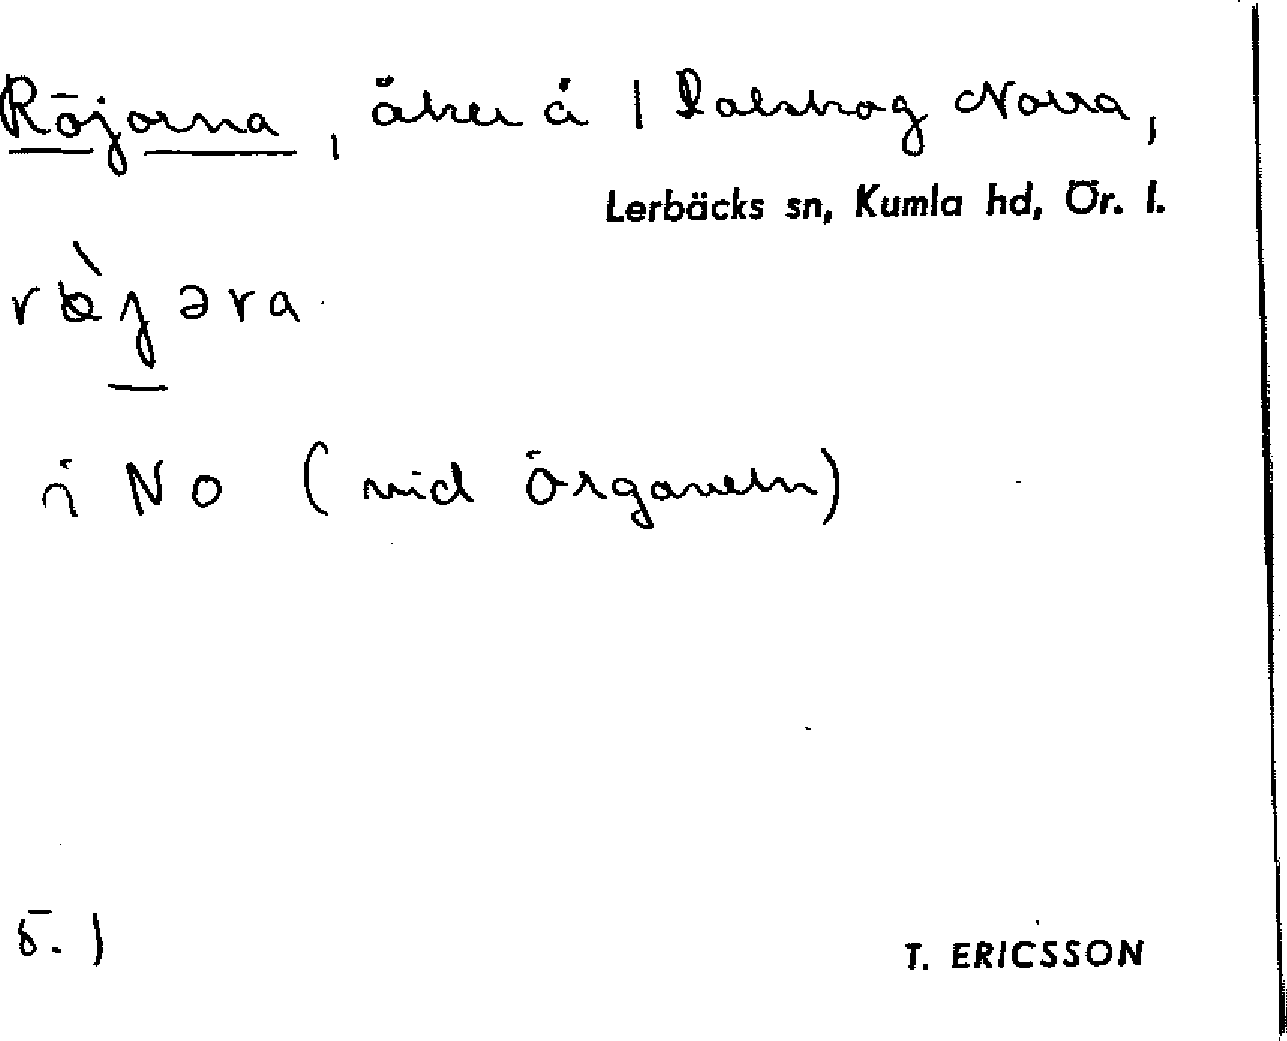 Röjorna, åker å 1 Dalskog Norra,
Lerbäcks sn, Kumla hd, Ör. l.
rö̀jəra
i NO (vid Örgaveln)
5.1
T. ERICSSON